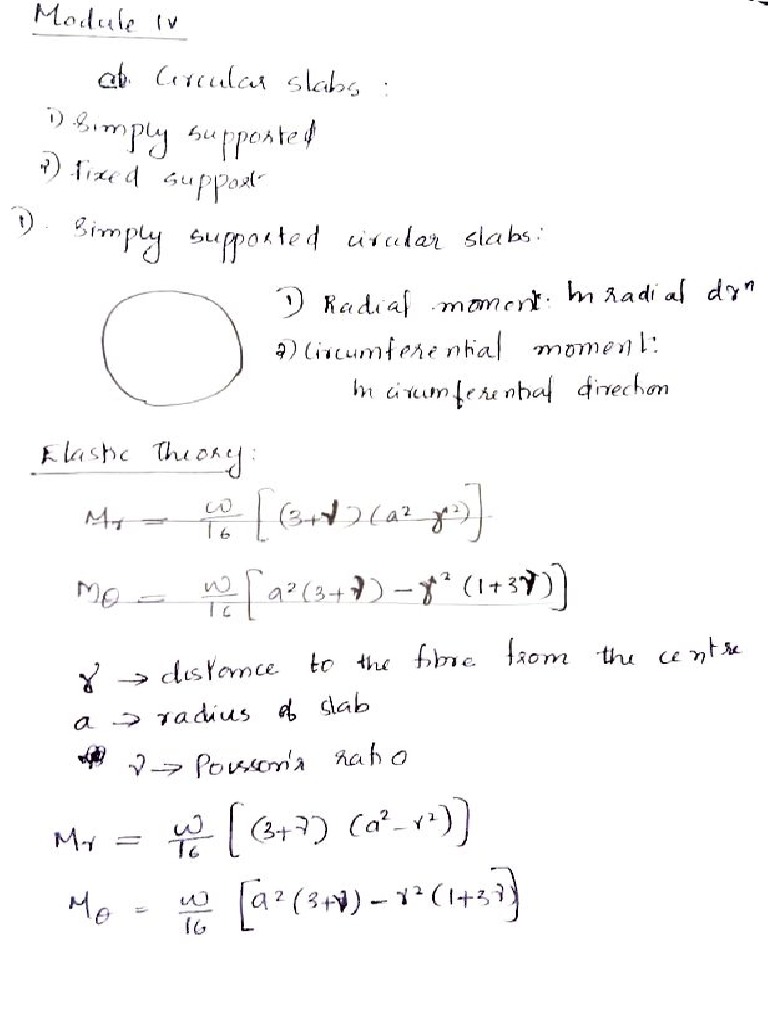 Module IV
Circular slabs :
1) Simply supported
2) fixed support
1) Simply supported circular slabs:
1) Radial moment: In radial dxn
2) Circumferential moment:
In circumferential direction
Elastic Theory:
Mr = w/16 [(3+ν)(a²-r²)]
Mθ = w/16 [a²(3+ν) - r²(1+3ν)]
r → distance to the fibre from the centre
a → radius of slab
ν → Poisson's ratio
Mr = w/16 [(3+ν) (a²-r²)]
Mθ = w/16 [a²(3+ν) - r²(1+3ν)]